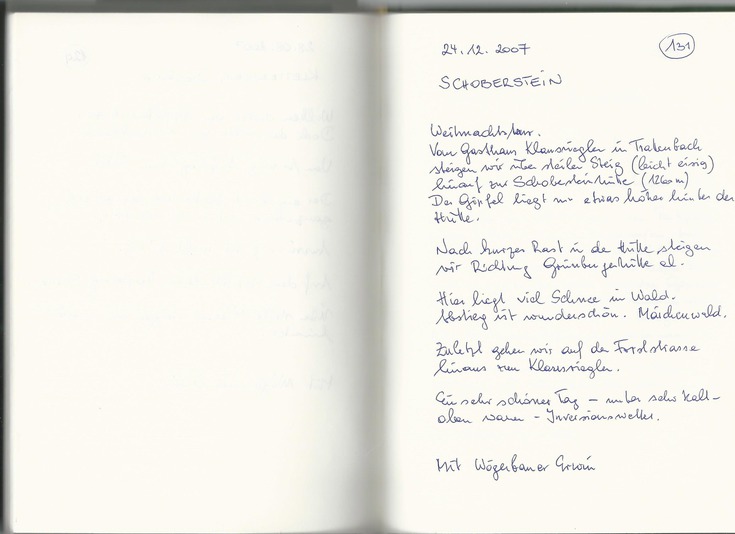 24.12.2007
131
SCHOBERSTEIN
Weihnachtstour.
Vom Gasthaus Klausriegler in Trattenbach
steigen wir über steilen Steig (leicht eisig)
hinauf zur Schobersteinhütte (1260 m)
Der Gipfel liegt nur etwas höher hinter der
Hütte.
Nach kurzer Rast in der Hütte steigen
wir Richtung Grünburgerhütte ab.
Hier liegt viel Schnee im Wald.
Abstieg ist wunderschön. Märchenwald.
Zuletzt gehen wir auf der Forststrasse
hinaus zum Klausriegler.
Ein sehr schöner Tag – unten sehr kalt –
oben warm – Inversionswetter.
Mit Wögerbauer Erwin